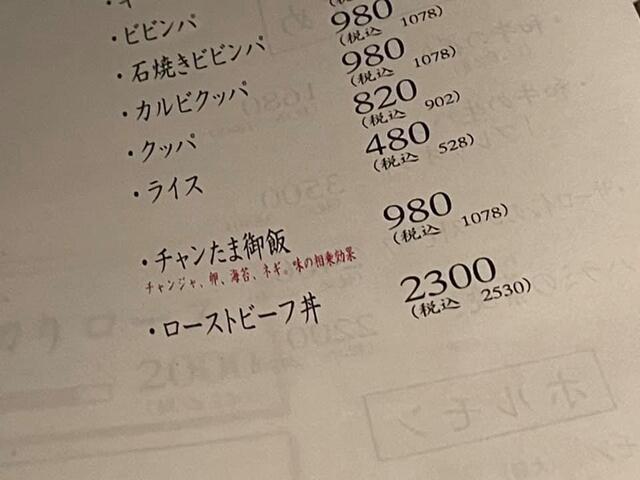 ・ビビンパ
・石焼きビビンパ 980
(税込 1078)
・カルビクッパ 980
(税込 1078)
・クッパ 820
(税込 902)
・ライス 480
(税込 528)
・チャンたま御飯 980
(税込 1078)
チャンジャ、卵、海苔、ネギ。味の相乗効果
・ローストビーフ丼 2300
(税込 2530)